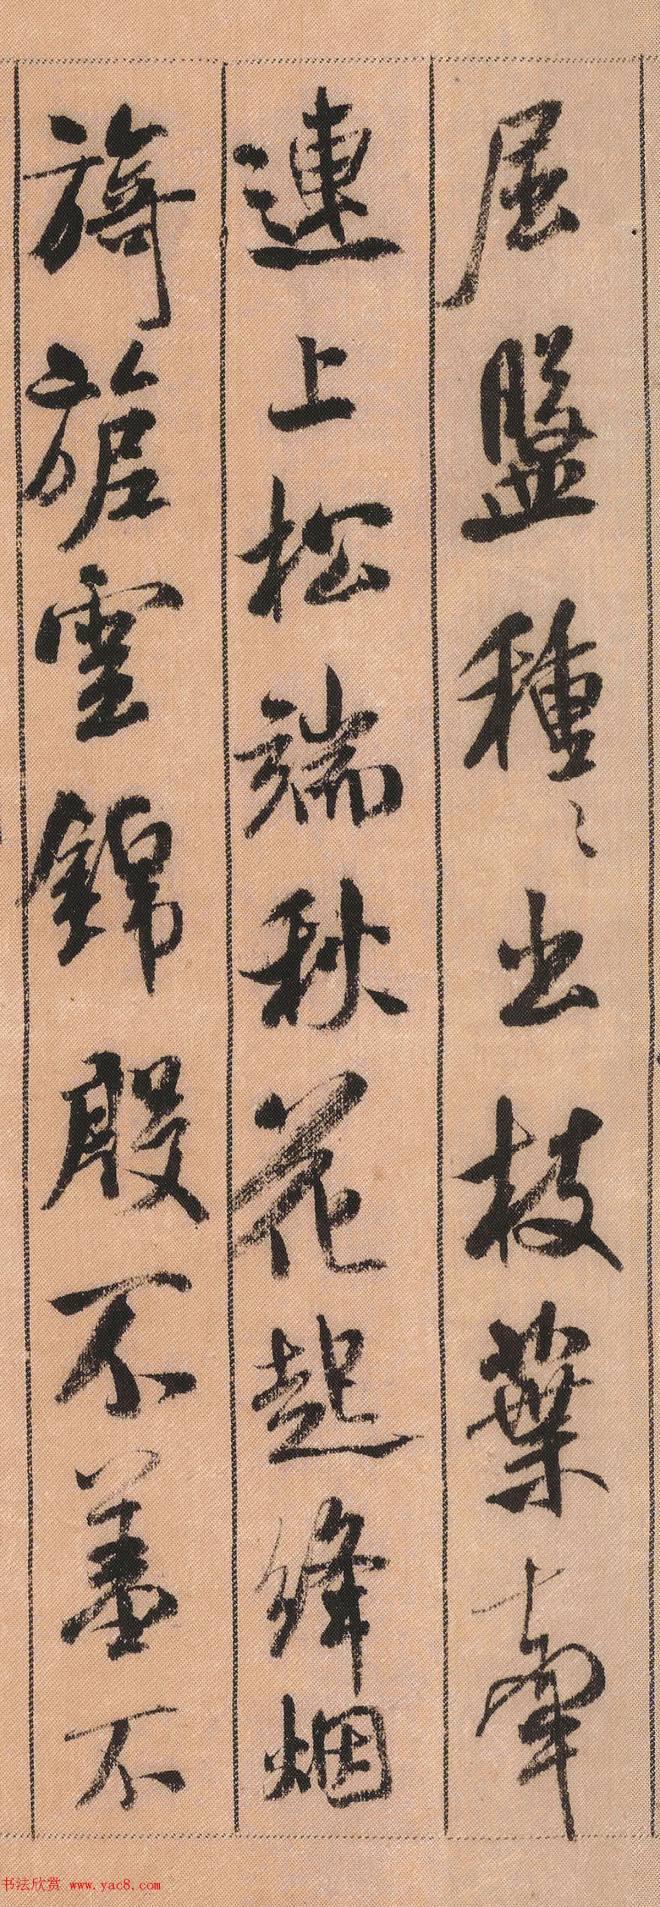 屈盤種〻出枝葉牽
連上松端秋花起絳烟
旖旎雲錦殷不羞不
书法欣赏 www.yac8.com